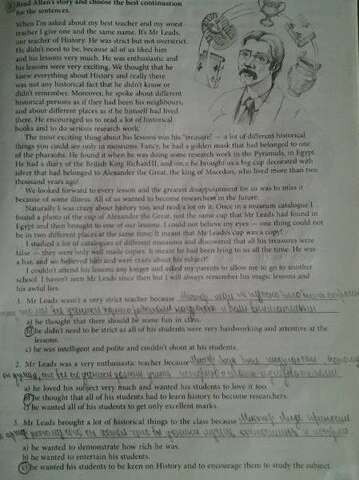 Read Allen's story and choose the best continuation
for the sentences.
When I'm asked about my best teacher and my worst
teacher I give one and the same name. It's Mr Leads,
our teacher of History. He was strict but not overstrict.
He didn't need to be, because all of us liked him
and his lessons very much. He was enthusiastic and
his lessons were very exciting. We thought that he
knew everything about History and really there
was not any historical fact that he didn't know or
didn't remember. Moreover, he spoke about different
historical persons as if they had been his neighbours,
and about different places as if he himself had lived
there. He encouraged us to read a lot of historical
books and to do serious research work.
The most exciting thing about his lessons was his "treasure" — a lot of different historical
things you could see only in museums. Fancy, he had a golden mask that had belonged to one
of the pharaohs. He found it when he was doing some research work in the Pyramids, in Egypt.
He had a diary of the British King Richard II, and once he brought us a big cup decorated with
silver that had belonged to Alexander the Great, the king of Macedon, who lived more than two
thousand years ago!
We looked forward to every lesson and the greatest disappointment for us was to miss it
because of some illness. All of us wanted to become researchers in the future.
Naturally I was crazy about history too, and read a lot on it. Once in a museum catalogue I
found a photo of the cup of Alexander the Great, just the same cup that Mr Leads had found in
Egypt and then brought to one of our lessons. I could not believe my eyes — one thing could not
be in two different places at the same time. It meant that Mr Leads's cup was a copy!
I studied a lot of catalogues of different museums and discovered that all his treasures were
false — they were only well made copies. It meant he had been lying to us all the time. He was
a liar, and we believed him and were crazy about his subject!
I couldn't attend his lessons any longer and asked my parents to allow me to go to another
school. I haven't seen Mr Leads since then but I will always remember his magic lessons and
his awful lies.
1. Mr Leads wasn't a very strict teacher because
a) he thought that there should be some fun in class.
b) he didn't need to be strict as all of his students were very hardworking and attentive at the
lessons.
c) he was intelligent and polite and couldn't shout at his students.
2. Mr Leads was a very enthusiastic teacher because
a) he loved his subject very much and wanted his students to love it too.
b) he thought that all of his students had to learn history to become researchers.
c) he wanted all of his students to get only excellent marks.
3. Mr Leads brought a lot of historical things to the class because
a) he wanted to demonstrate how rich he was.
b) he wanted to entertain his students.
c) he wanted his students to be keen on History and to encourage them to study the subject.